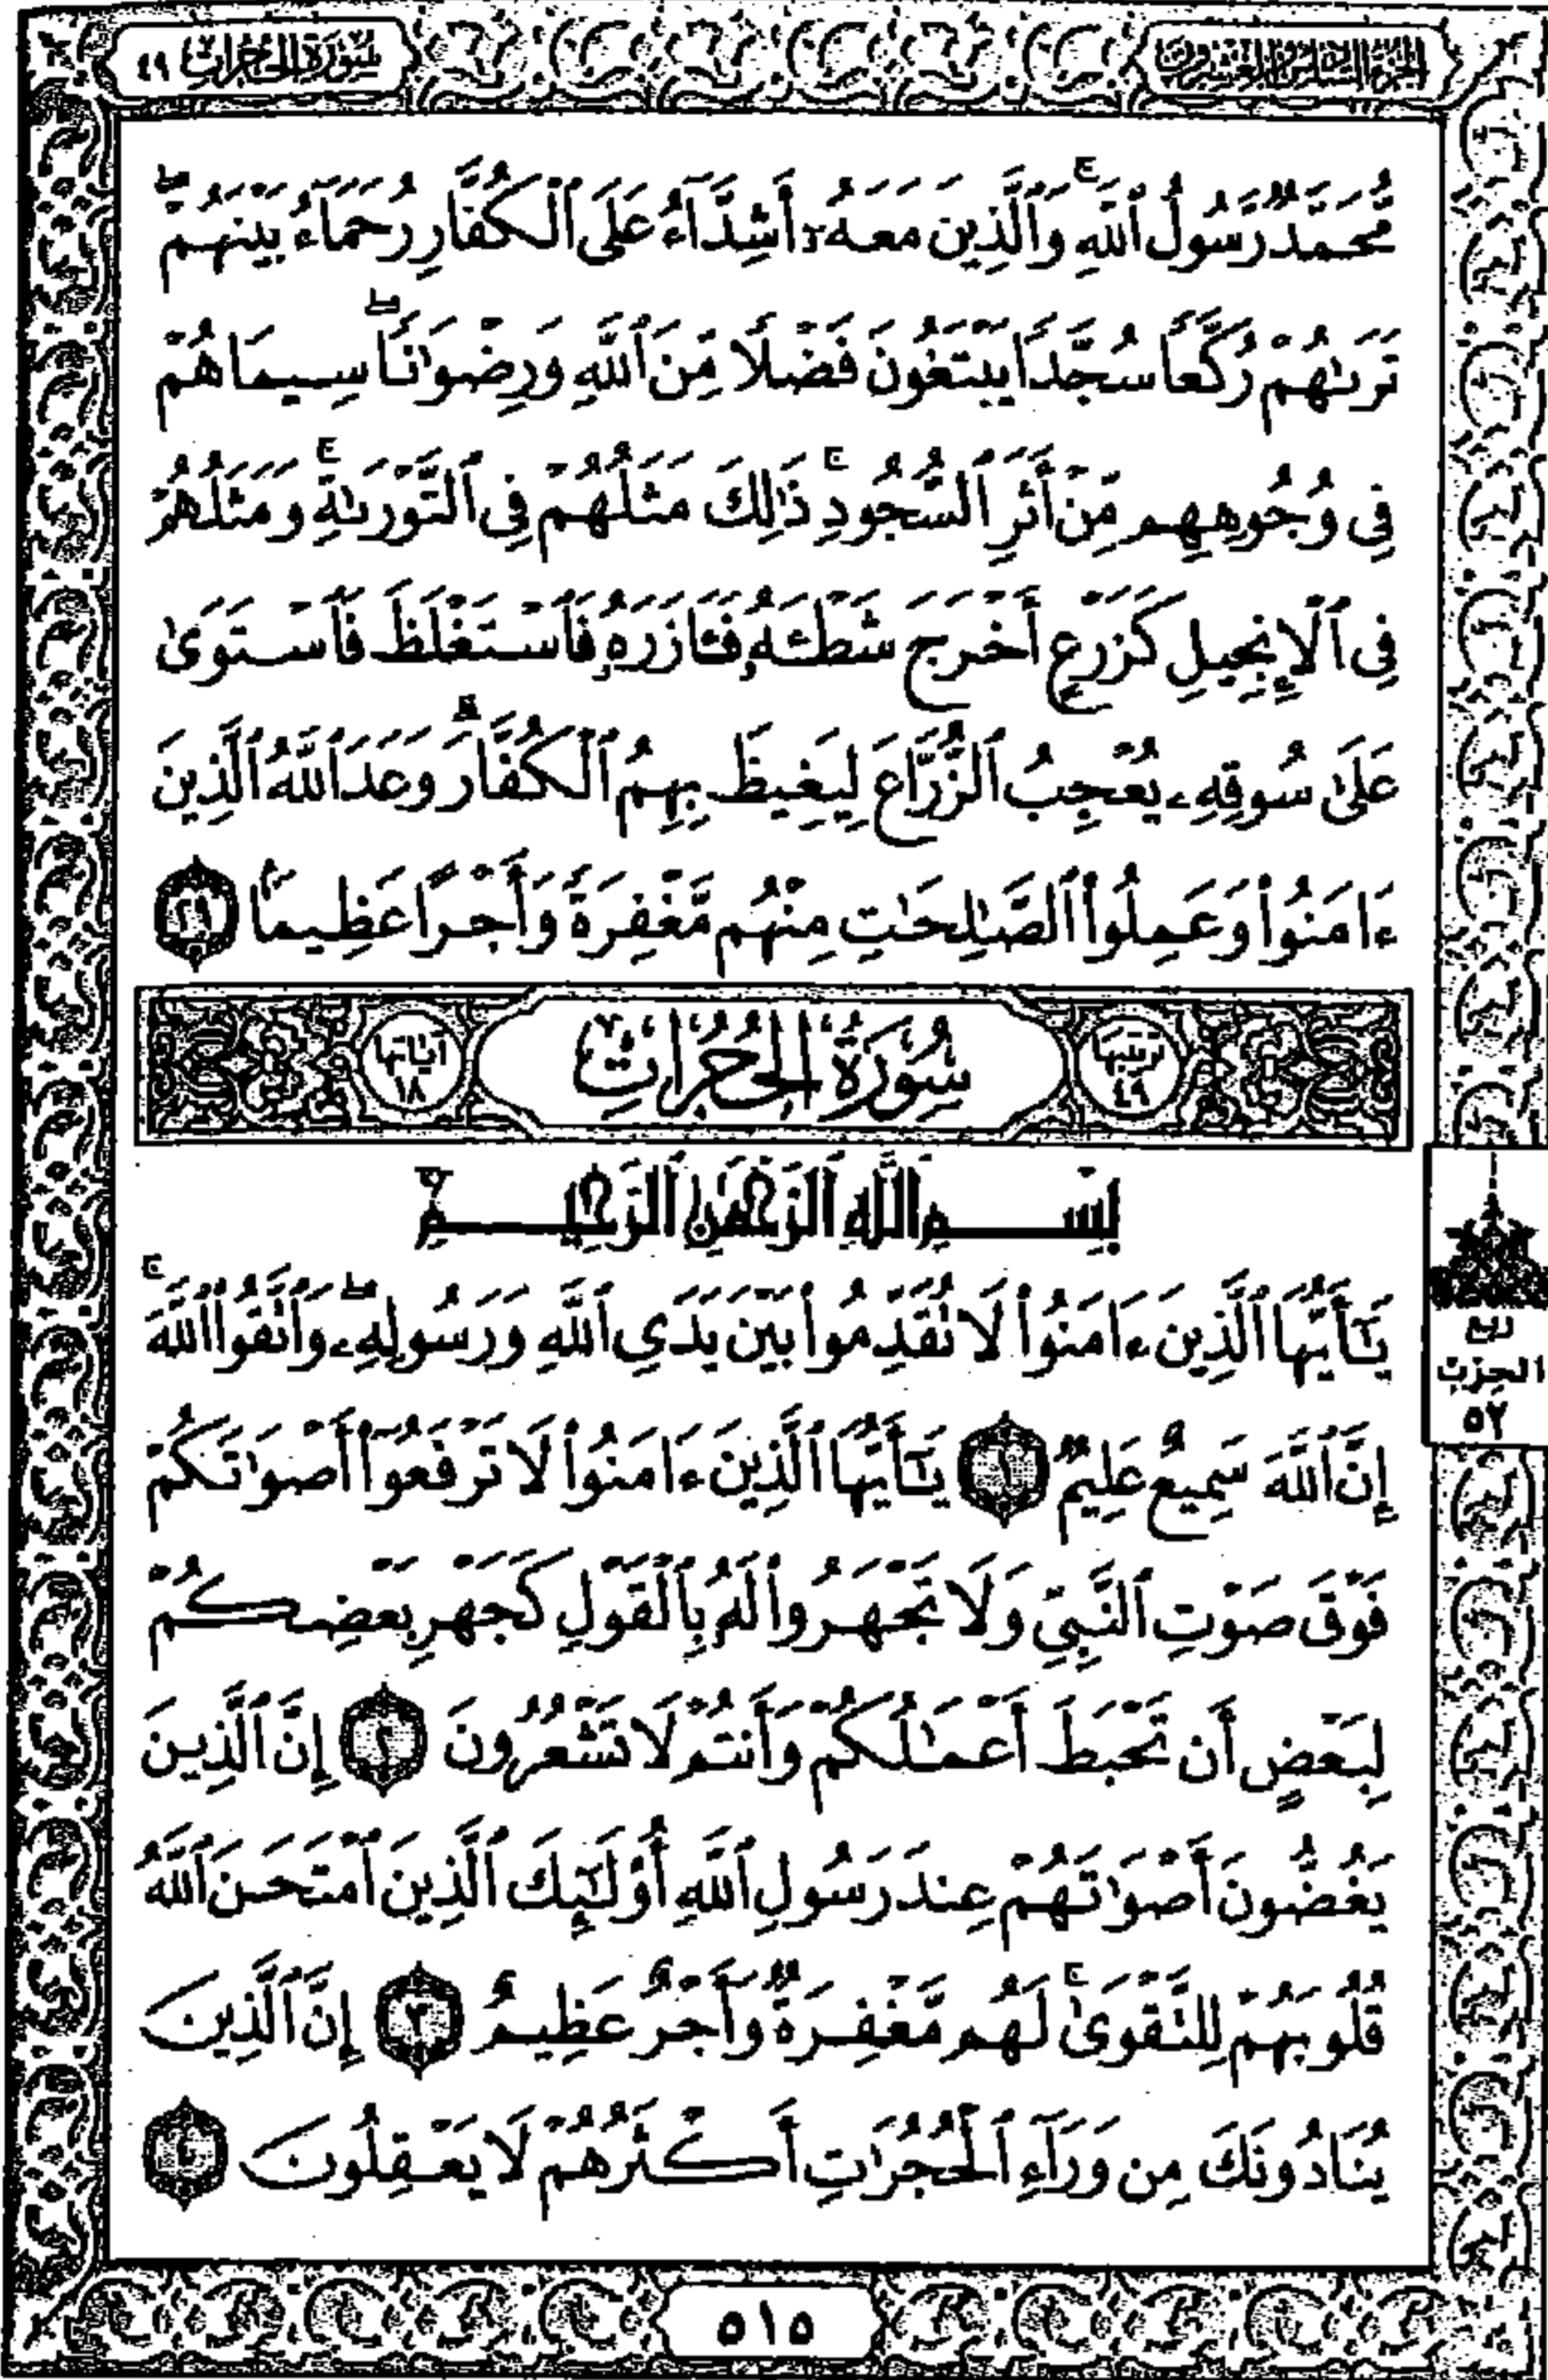 الجزء السادس والعشرون
سورة الحجرات ٤٩
مُّحَمَّدٌ رَّسُولُ ٱللَّهِ ۚ وَٱلَّذِينَ مَعَهُۥٓ أَشِدَّآءُ عَلَى ٱلْكُفَّارِ رُحَمَآءُ بَيْنَهُمْ ۖ
تَرَىٰهُمْ رُكَّعًا سُجَّدًا يَبْتَغُونَ فَضْلًا مِّنَ ٱللَّهِ وَرِضْوَٰنًا ۖ سِيمَاهُمْ
فِى وُجُوهِهِم مِّنْ أَثَرِ ٱلسُّجُودِ ۚ ذَٰلِكَ مَثَلُهُمْ فِى ٱلتَّوْرَىٰةِ ۚ وَمَثَلُهُمْ
فِى ٱلْإِنجِيلِ كَزَرْعٍ أَخْرَجَ شَطْـَٔهُۥ فَـَٔازَرَهُۥ فَٱسْتَغْلَظَ فَٱسْتَوَىٰ
عَلَىٰ سُوقِهِۦ يُعْجِبُ ٱلزُّرَّاعَ لِيَغِيظَ بِهِمُ ٱلْكُفَّارَ ۗ وَعَدَ ٱللَّهُ ٱلَّذِينَ
ءَامَنُوا۟ وَعَمِلُوا۟ ٱلصَّٰلِحَٰتِ مِنْهُم مَّغْفِرَةً وَأَجْرًا عَظِيمًۢا ٢٩
ترتيبها ٤٩ سُورَةُ الْحُجُرَاتِ آياتها ١٨
بِسْمِ ٱللَّهِ ٱلرَّحْمَٰنِ ٱلرَّحِيمِ
يَٰٓأَيُّهَا ٱلَّذِينَ ءَامَنُوا۟ لَا تُقَدِّمُوا۟ بَيْنَ يَدَىِ ٱللَّهِ وَرَسُولِهِۦ ۖ وَٱتَّقُوا۟ ٱللَّهَ ۚ
إِنَّ ٱللَّهَ سَمِيعٌ عَلِيمٌ ١ يَٰٓأَيُّهَا ٱلَّذِينَ ءَامَنُوا۟ لَا تَرْفَعُوٓا۟ أَصْوَٰتَكُمْ
فَوْقَ صَوْتِ ٱلنَّبِىِّ وَلَا تَجْهَرُوا۟ لَهُۥ بِٱلْقَوْلِ كَجَهْرِ بَعْضِكُمْ
لِبَعْضٍ أَن تَحْبَطَ أَعْمَٰلُكُمْ وَأَنتُمْ لَا تَشْعُرُونَ ٢ إِنَّ ٱلَّذِينَ
يَغُضُّونَ أَصْوَٰتَهُمْ عِندَ رَسُولِ ٱللَّهِ أُو۟لَٰٓئِكَ ٱلَّذِينَ ٱمْتَحَنَ ٱللَّهُ
قُلُوبَهُمْ لِلتَّقْوَىٰ ۚ لَهُم مَّغْفِرَةٌ وَأَجْرٌ عَظِيمٌ ٣ إِنَّ ٱلَّذِينَ
يُنَادُونَكَ مِن وَرَآءِ ٱلْحُجُرَٰتِ أَكْثَرُهُمْ لَا يَعْقِلُونَ ٤
ربع
الحزب
٥٢
٥١٥